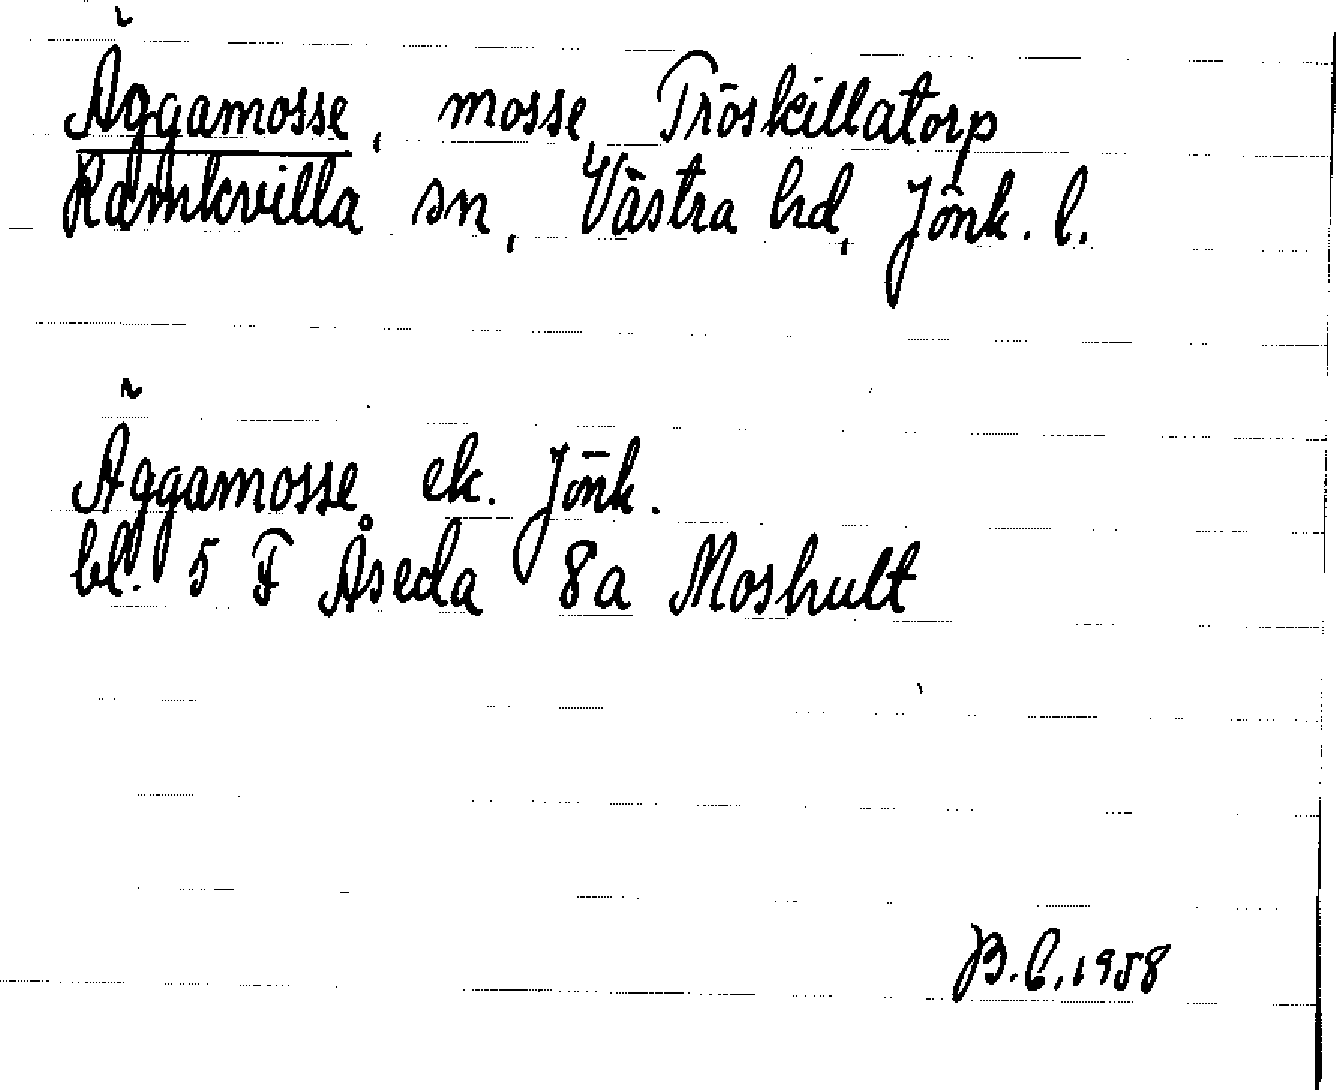 Äggamosse, mosse, Tröskillatorp
Ramkvilla sn, Västra hd, Jönk. l.
Äggamosse, ek. Jönk.
bl. 5 F Åseda 8a Moshult
B.E. 1958